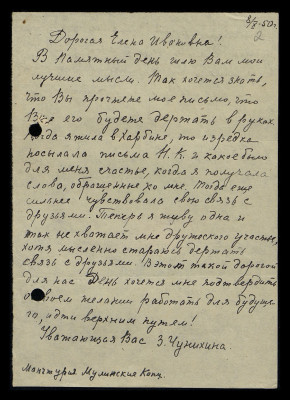 8/X-50г.
2
Дорогая Елена Ивановна!
В Памятный день шлю Вам мои
лучшие мысли. Так хочется знать,
что Вы прочтете мое письмо, что
Вы его будете держать в руках.
Когда я жила в Харбине, то изредка
посылала письма Н.К. и какое было
для меня счастье, когда я получала
слова, обращенные ко мне. Тогда еще
сильнее чувствовала свою связь с
друзьями. Теперь я живу одна и
так не хватает мне дружеского участья,
хотя мысленно стараюсь держать
связь с друзьями. В этот такой дорогой
для нас День хочется мне подтвердить
о своем желании работать для будуще-
го, идти верхним путем!
Уважающая Вас З. Чунихина.
Манчжурия Мулинские Копи.